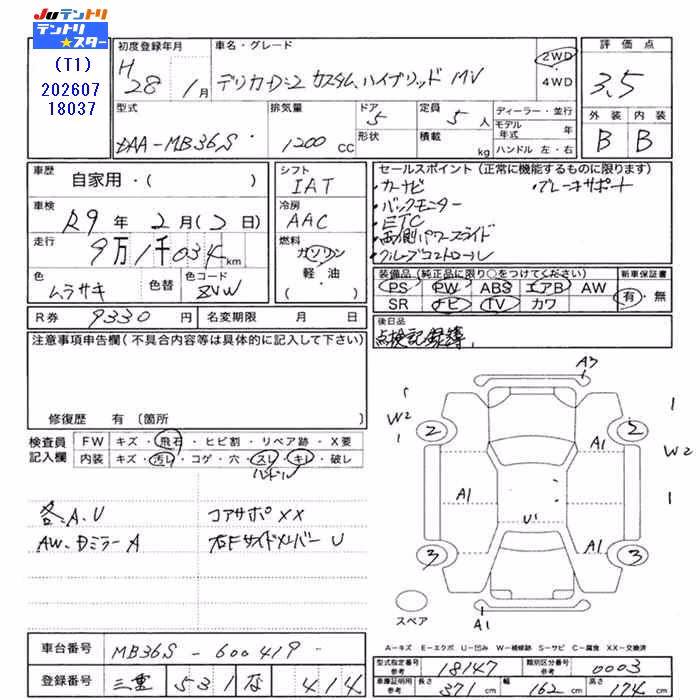 JUテントリ
テントリ★スター
(T1)
202607
18037
初度登録年月
H28年 1月
車名・グレード
デリカD:2 カスタム、ハイブリッド MV
2WD
・
4WD
評価点
3.5
外装 内装
B B
型式
DAA-MB36S
排気量
1200 CC
ドア
5
形状
定員
5 人
積載
kg
ディーラー・並行
モデル年式 年
ハンドル 左・右
車歴
自家用・( )
車検
R9年 2月(2日)
走行
9万1千034km
色
ムラサキ
色替
色コード
ZVW
シフト
IAT
冷房
AAC
燃料
ガソリン
・
軽・油
( )
セールスポイント(正常に機能するものに限ります)
・カーナビ ・ブレーキサポート
・バックモニター
・ETC
・両側パワースライド
・クルーズコントロール
装備品(純正品に限り○をつけてください)
PS PW ABS エアB AW
SR ナビ TV カワ
新車保証書
有・無
R券 9330 円
名変期限 月 日
後日品
点検記録簿
注意事項申告欄(不具合内容等は具体的に記入して下さい)
修復歴 有〔箇所 〕
検査員記入欄
FW キズ・飛石・ヒビ割・リペア跡・X要
内装 キズ・汚レ・コゲ・穴・スレ・キレ・破レ
ハンドル
各A、U コアサポXX
AW、Dミラー A 右Fサイドメンバー U
A3
W2
2
2
A1
W2
A1
U1
3
A1
3
スペア
A1
A=キズ E=エクボ U=凹み W=補修跡 S=サビ C=腐食 XX=交換済
車台番号 MB36S - 600419
登録番号 三重 531 な 414
型式指定番号 参考 18147
類別区分番号 参考 0003
車庫証明用 参考 長さ 371 cm 幅 162 cm 高さ 174 cm